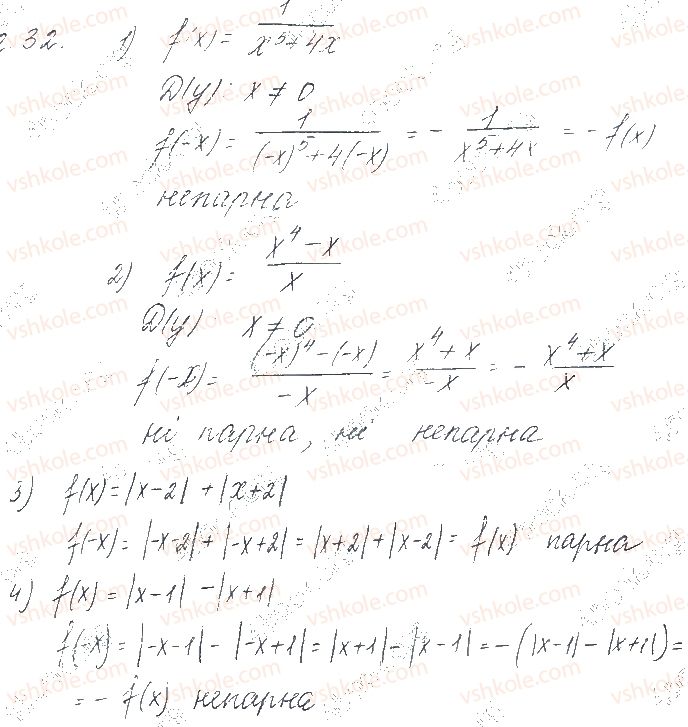 2 32. 1) f(x) = 1/(x⁵+4x)
D(y): x ≠ 0
f(-x) = 1/((-x)⁵+4(-x)) = - 1/(x⁵+4x) = - f(x)
непарна
2) f(x) = (x⁴-x)/x
D(y) x ≠ 0
f(-x) = ((-x)⁴-(-x))/(-x) = (x⁴+x)/(-x) = - (x⁴+x)/x
ні парна, ні непарна
3) f(x) = |x-2| + |x+2|
f(-x) = |-x-2| + |-x+2| = |x+2| + |x-2| = f(x) парна
4) f(x) = |x-1| - |x+1|
f(-x) = |-x-1| - |-x+1| = |x+1| - |x-1| = -(|x-1| - |x+1|) =
= - f(x) непарна